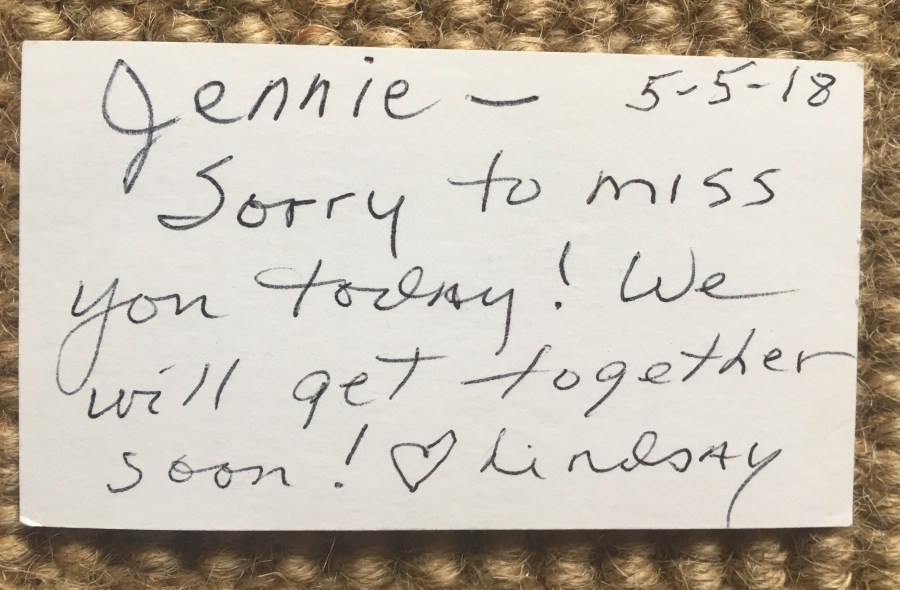 Jennie — 5-5-18
Sorry to miss
you today! We
will get together
soon! ♡ Lindsay